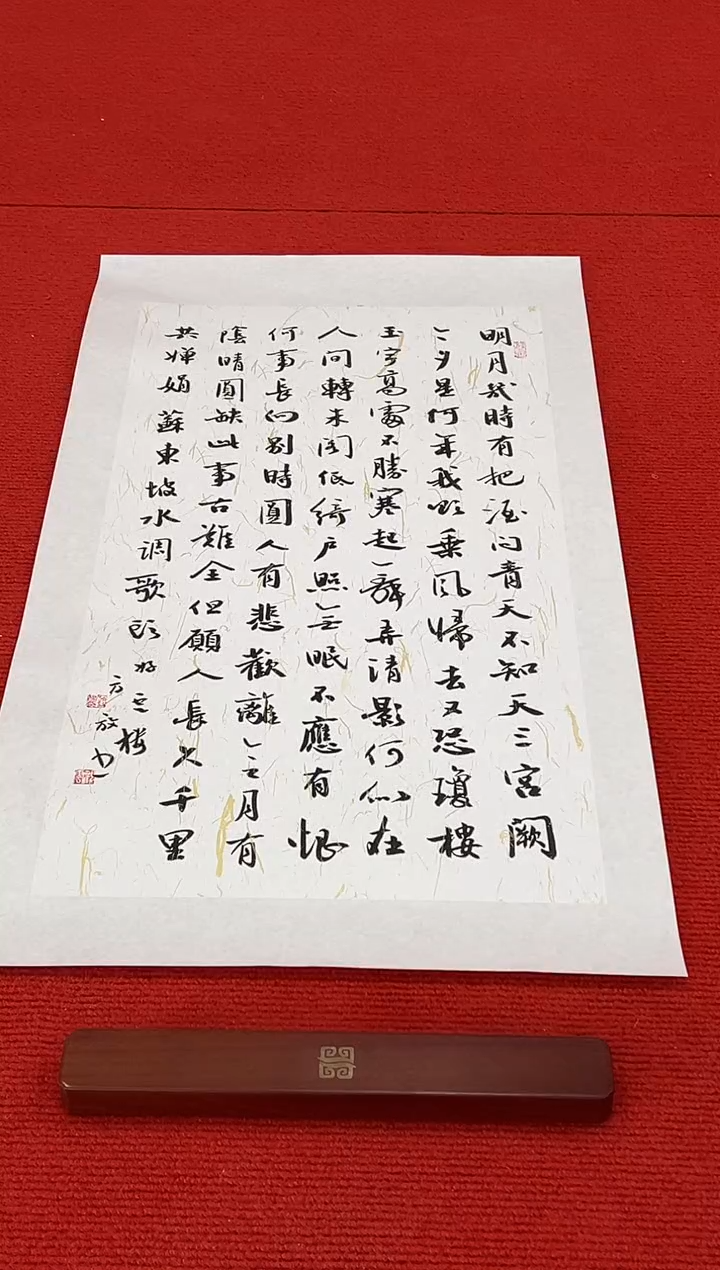 明月幾時有把酒问青天不知天上宫闕
今夕是何年我欲乘風歸去又恐瓊樓
玉宇高處不勝寒起舞弄清影何似在
人间轉朱阁低綺户照無眠不應有恨
何事長向别時圓人有悲歡離合月有
陰晴圓缺此事古難全但願人長久千里
共嬋娟 蘇東坡水调歌頭
方放书